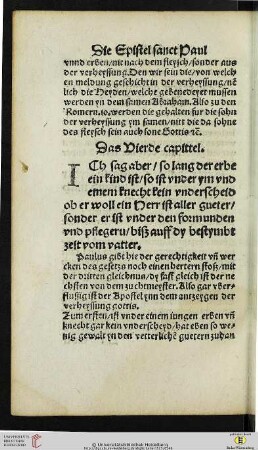 Die Epistel sanct Paul
vnnd erben/nit nach dem fleysch/sonder aus
der verheyssung. Den wir sein die/von welch
en meldung geschicht in der verheyssung/nē
lich die Heyden/welche gebenedeyet mussen
werden yn dem samen Abraham. Also zu den
Romern.10. werden die gehalten fur die sohn
der verheyssung ym samen/nit die da sohne
des fleysch sein auch sone Gottis ⁊c.
Das Vierde capittel.
ICh sag aber/so lang der erbe
ein kind ist/so ist vnder ym vnd
einem knecht kein vnderscheid
ob er woll ein Herr ist aller gueter/
sonder er ist vnder den formunden
vnd pflegern/biß auff dy bestymbt
zeit vom vatter.
Paulus gibt hie der gerechtigkeit vn̄ wer
cken des gesetzs noch einen hertern stoß/mit
der dritten gleichnus/dy fast gleich ist der ne
chsten von dem zuchtmeyster. Also gar vber-
flussig ist der Apostel ynn dem antzeygen der
verheyssung gottis.
Zum ersten/ist vnder einem iungen erben vn̄
knecht gar kein vnderscheyd/hat eben so we-
nig gewalt yn den vetterlichē guetern zu han
UNIVERSITÄTS-
BIBLIOTHEK
HEIDELBERG
© Universitätsbibliothek Heidelberg
Baden-Württemberg